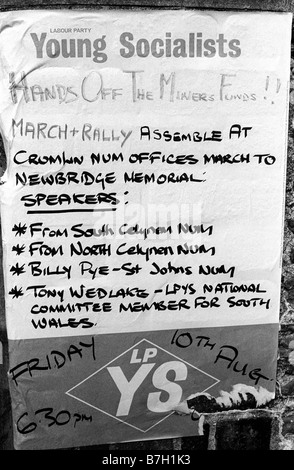 LABOUR PARTY
Young Socialists
HANDS OFF THE MINERS FUNDS !!
MARCH + RALLY ASSEMBLE AT
CRUMLIN NUM OFFICES MARCH TO
NEWBRIDGE MEMORIAL.
SPEAKERS:
* FROM SOUTH CELYNEN NUM
* FROM NORTH CELYNEN NUM
* BILLY PYE - ST JOHNS NUM
* TONY WEDLAKE - LPYS NATIONAL
COMMITTEE MEMBER FOR SOUTH
WALES.
FRIDAY 10TH AUG.
LP
YS
6:30 pm
alamy
Image ID: B7H1K3
www.alamy.com